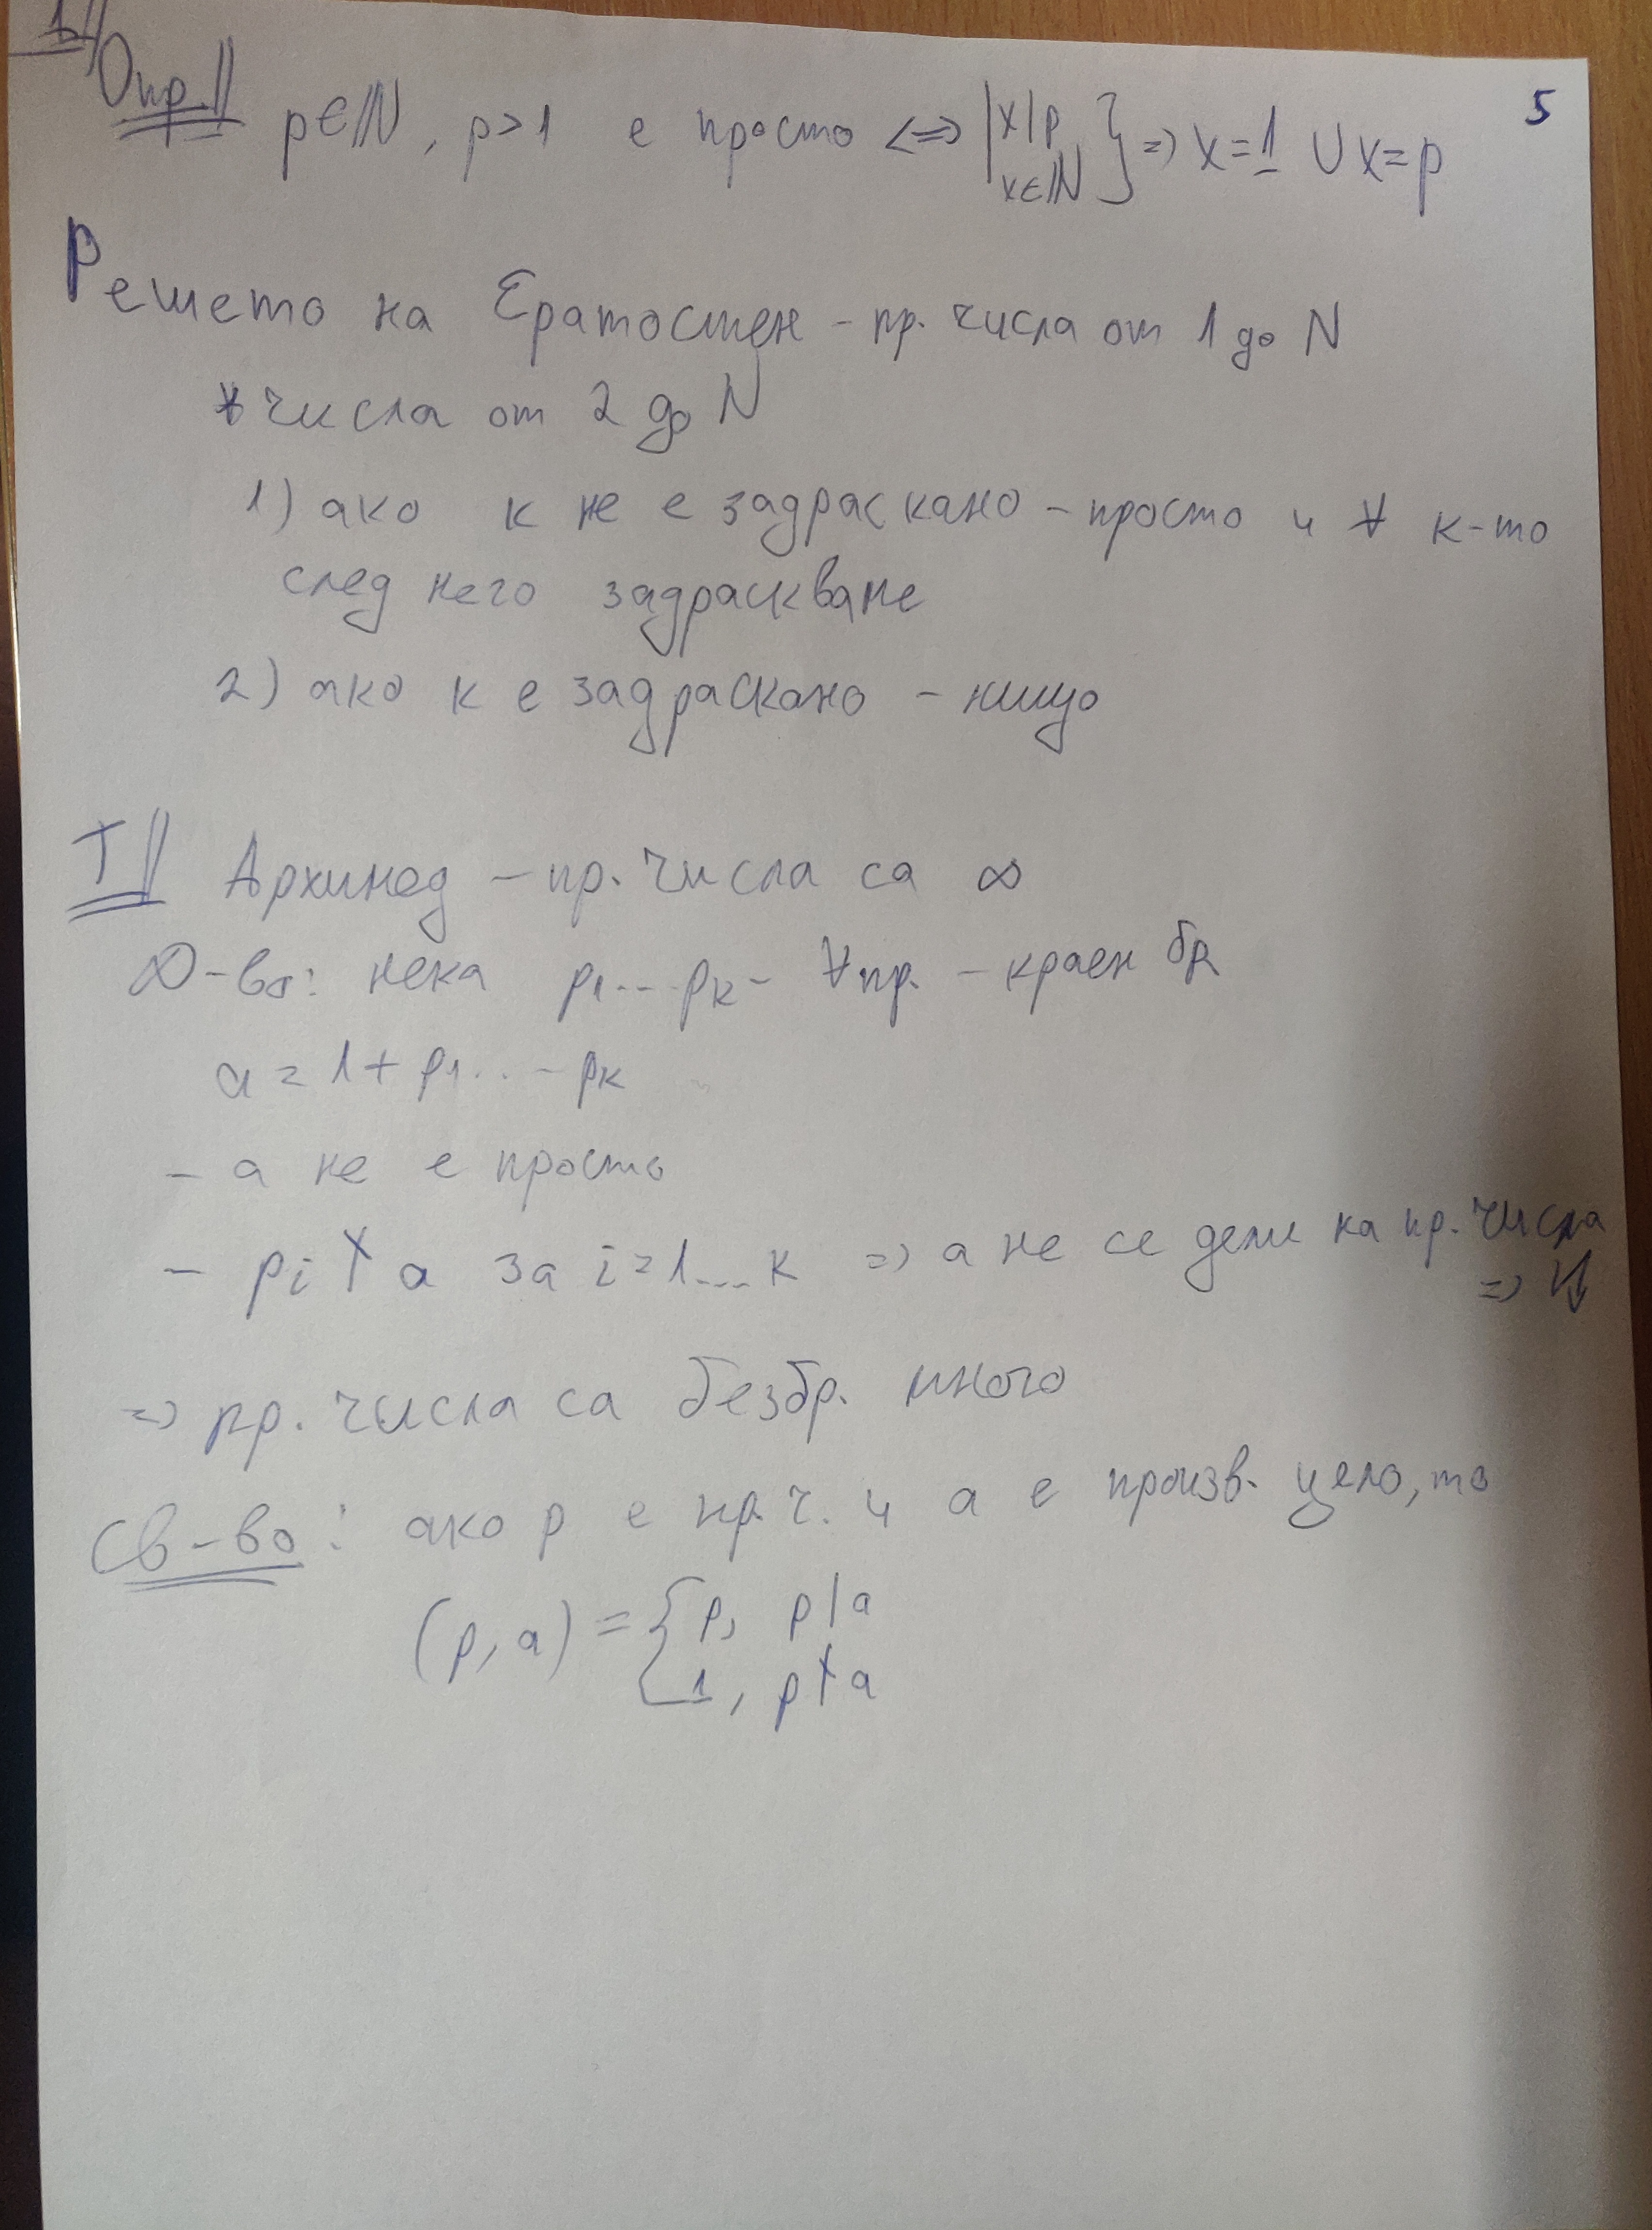 5
1
Опр. p∈ℕ, p>1 е просто <=> |x|p x∈ℕ} => x=1 ∪ x=p
Решето на Ератостен - пр. числа от 1 до N
∀ числа от 2 до N
1) ако к не е задраскано - просто и ∀ к-то
след него задраскваме
2) ако к е задраскано - нищо
T Архимед - пр. числа са ∞
D-во: нека p₁...pₖ - ∀ пр. - краен бр
a = 1 + p₁...pₖ
- а не е просто
- pᵢ ∤ a за i=1...k => а не се дели на пр. числа
=> ↯
=> пр. числа са безбр. много
Св-во: ако p е пр.ч. и а е произв. цяло, то
(p, a) = { p, p|a
1, p∤a